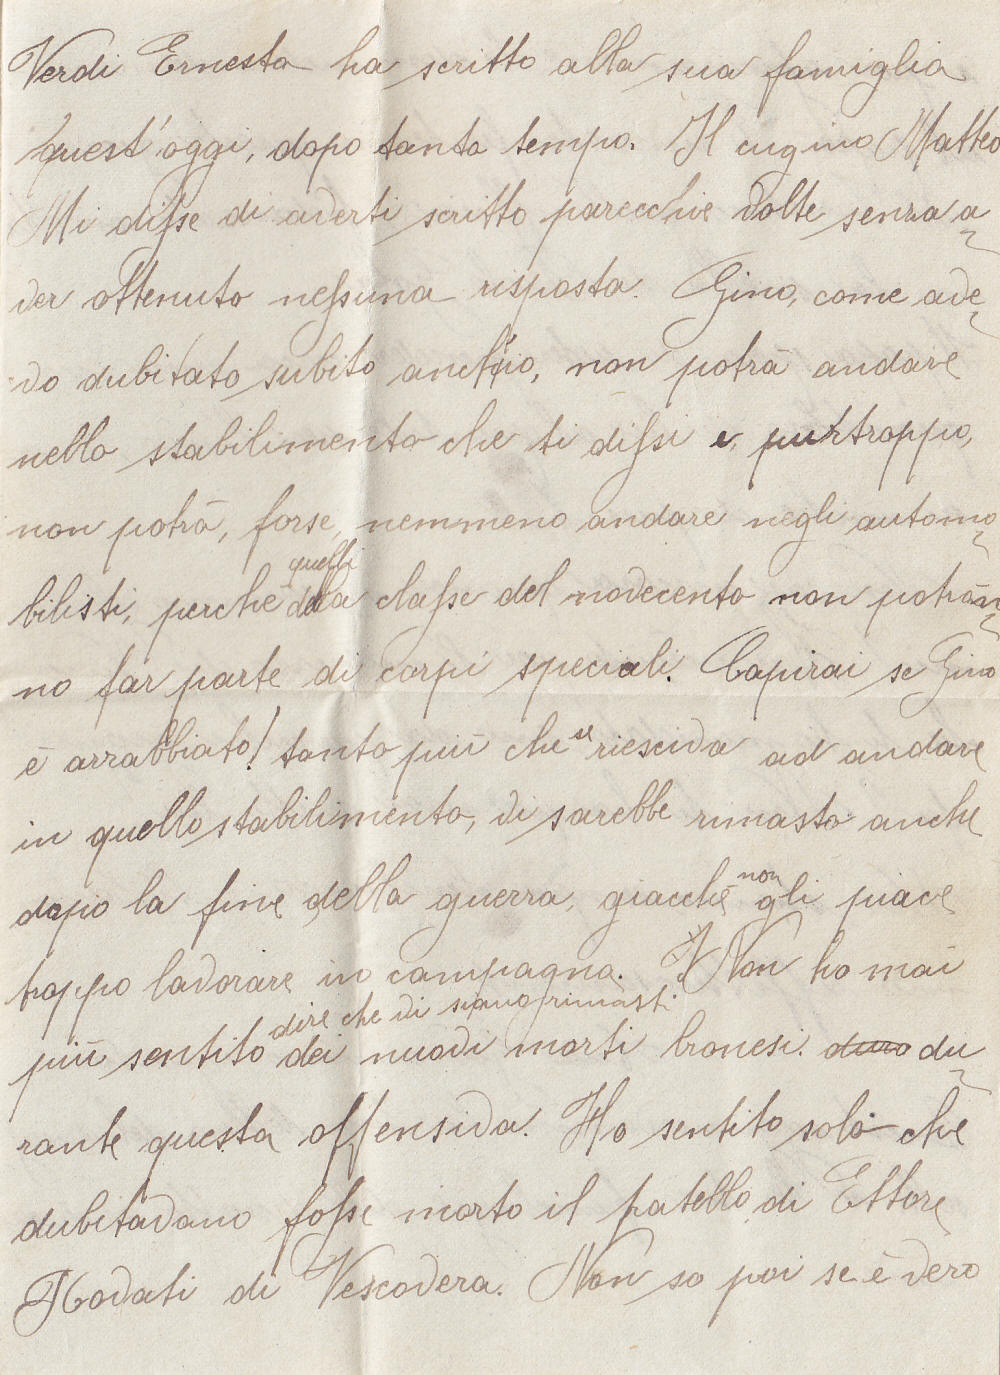 Verdi Ernesto ha scritto alla sua famiglia
quest'oggi, dopo tanto tempo. Il cugino Matteo
Mi disse di averti scritto parecchie volte senza a-
ver ottenuto nessuna risposta. Gino, come ave-
vo dubitato subito anch'io, non potrà andare
nello stabilimento che ti dissi e, purtroppo,
non potrà, forse, nemmeno andare negli automo-
bilisti, perchè quelli della classe del novecento non potran-
no far parte di corpi speciali. Capirai se Gino
è arrabbiato! tanto più che se riesciva ad andare
in quello stabilimento, vi sarebbe rimasto anche
dopo la fine della guerra, giacchè non gli piace
troppo lavorare in campagna. Non ho mai
più sentito dire che vi siano rimasti
dei nuovi morti bronesi. duro du-
rante questa offensiva. Ho sentito solo che
dubitavano fosse morto il fratello di Ettore
Rovati di Vescovera. Non so poi se è vero